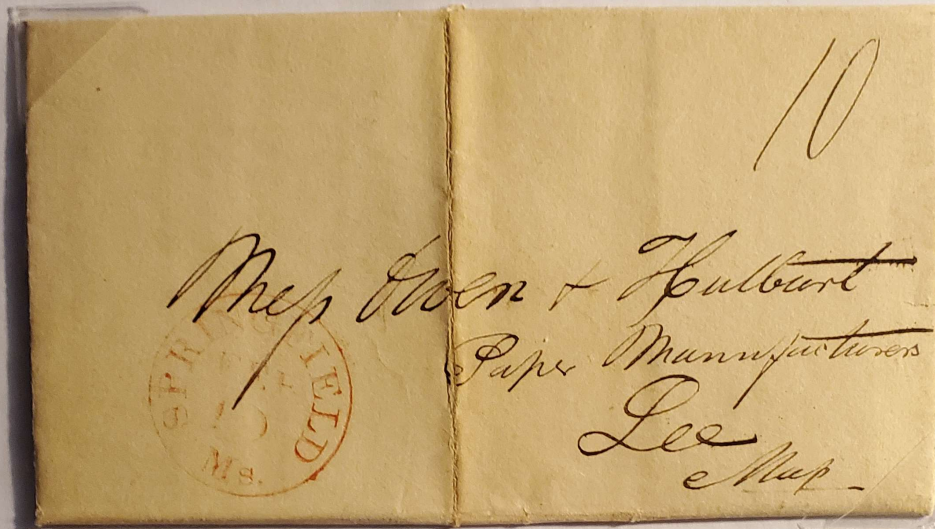 10
Mess Owen & Hulburt
Paper Manufacturers
Lee
Mass
SPRINGFIELD
Ms.